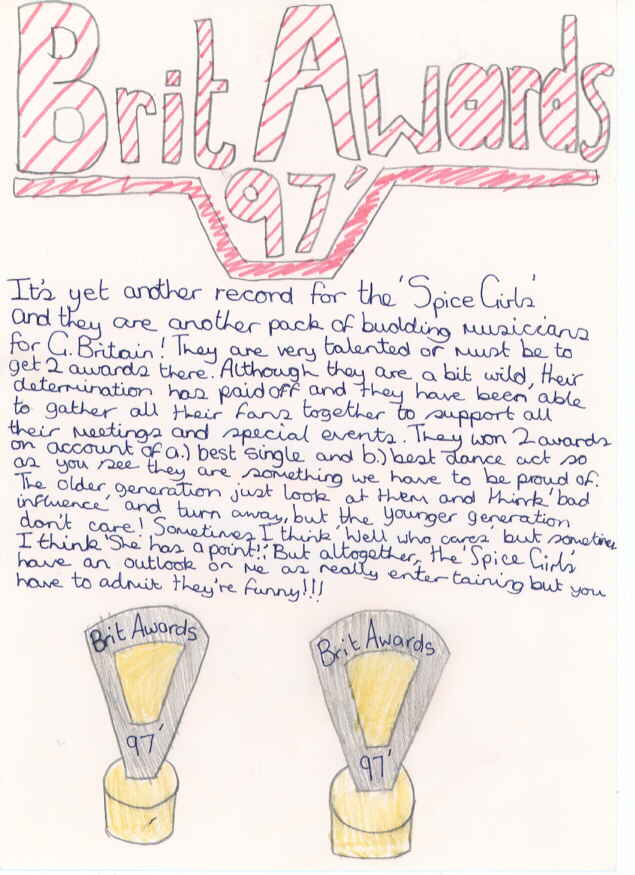 Brit Awards
97'
It's yet another record for the 'Spice Girls'
and they are another pack of budding musicians
for G. Britain! They are very talented or must be to
get 2 awards there. Although they are a bit wild, their
determination has paid off and they have been able
to gather all their fans together to support all
their meetings and special events. They won 2 awards
on account of a.) best single and b.) best dance act so
as you see they are something we have to be proud of.
The older generation just look at them and think 'bad
influence' and turn away, but the younger generation
don't care! Sometimes I think 'Well who cares' but sometimes
I think 'She has a point!?' But altogether, the 'Spice Girls'
have an outlook on me as really entertaining but you
have to admit they're funny!!!
Brit Awards
97'
Brit Awards
97'